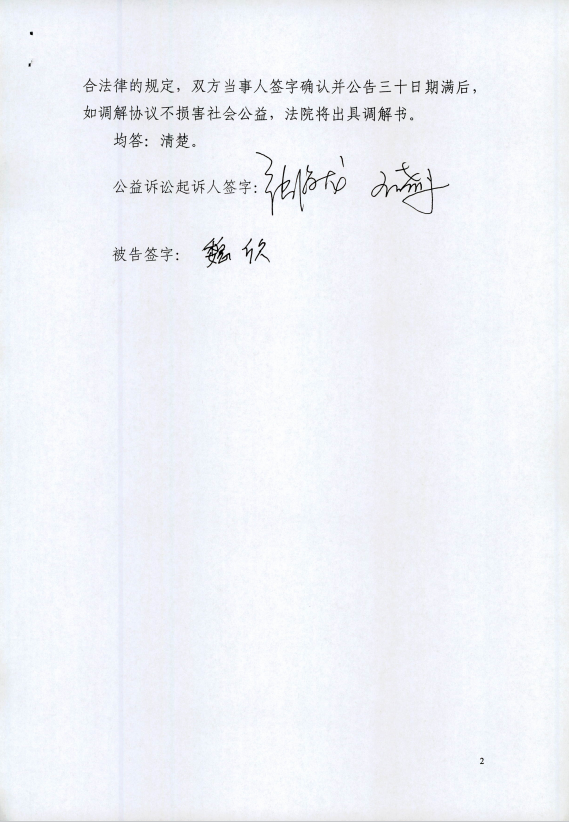 合法律的规定，双方当事人签字确认并公告三十日期满后，
如调解协议不损害社会公益，法院将出具调解书。
均答：清楚。
公益诉讼起诉人签字：
被告签字：魏欣
2